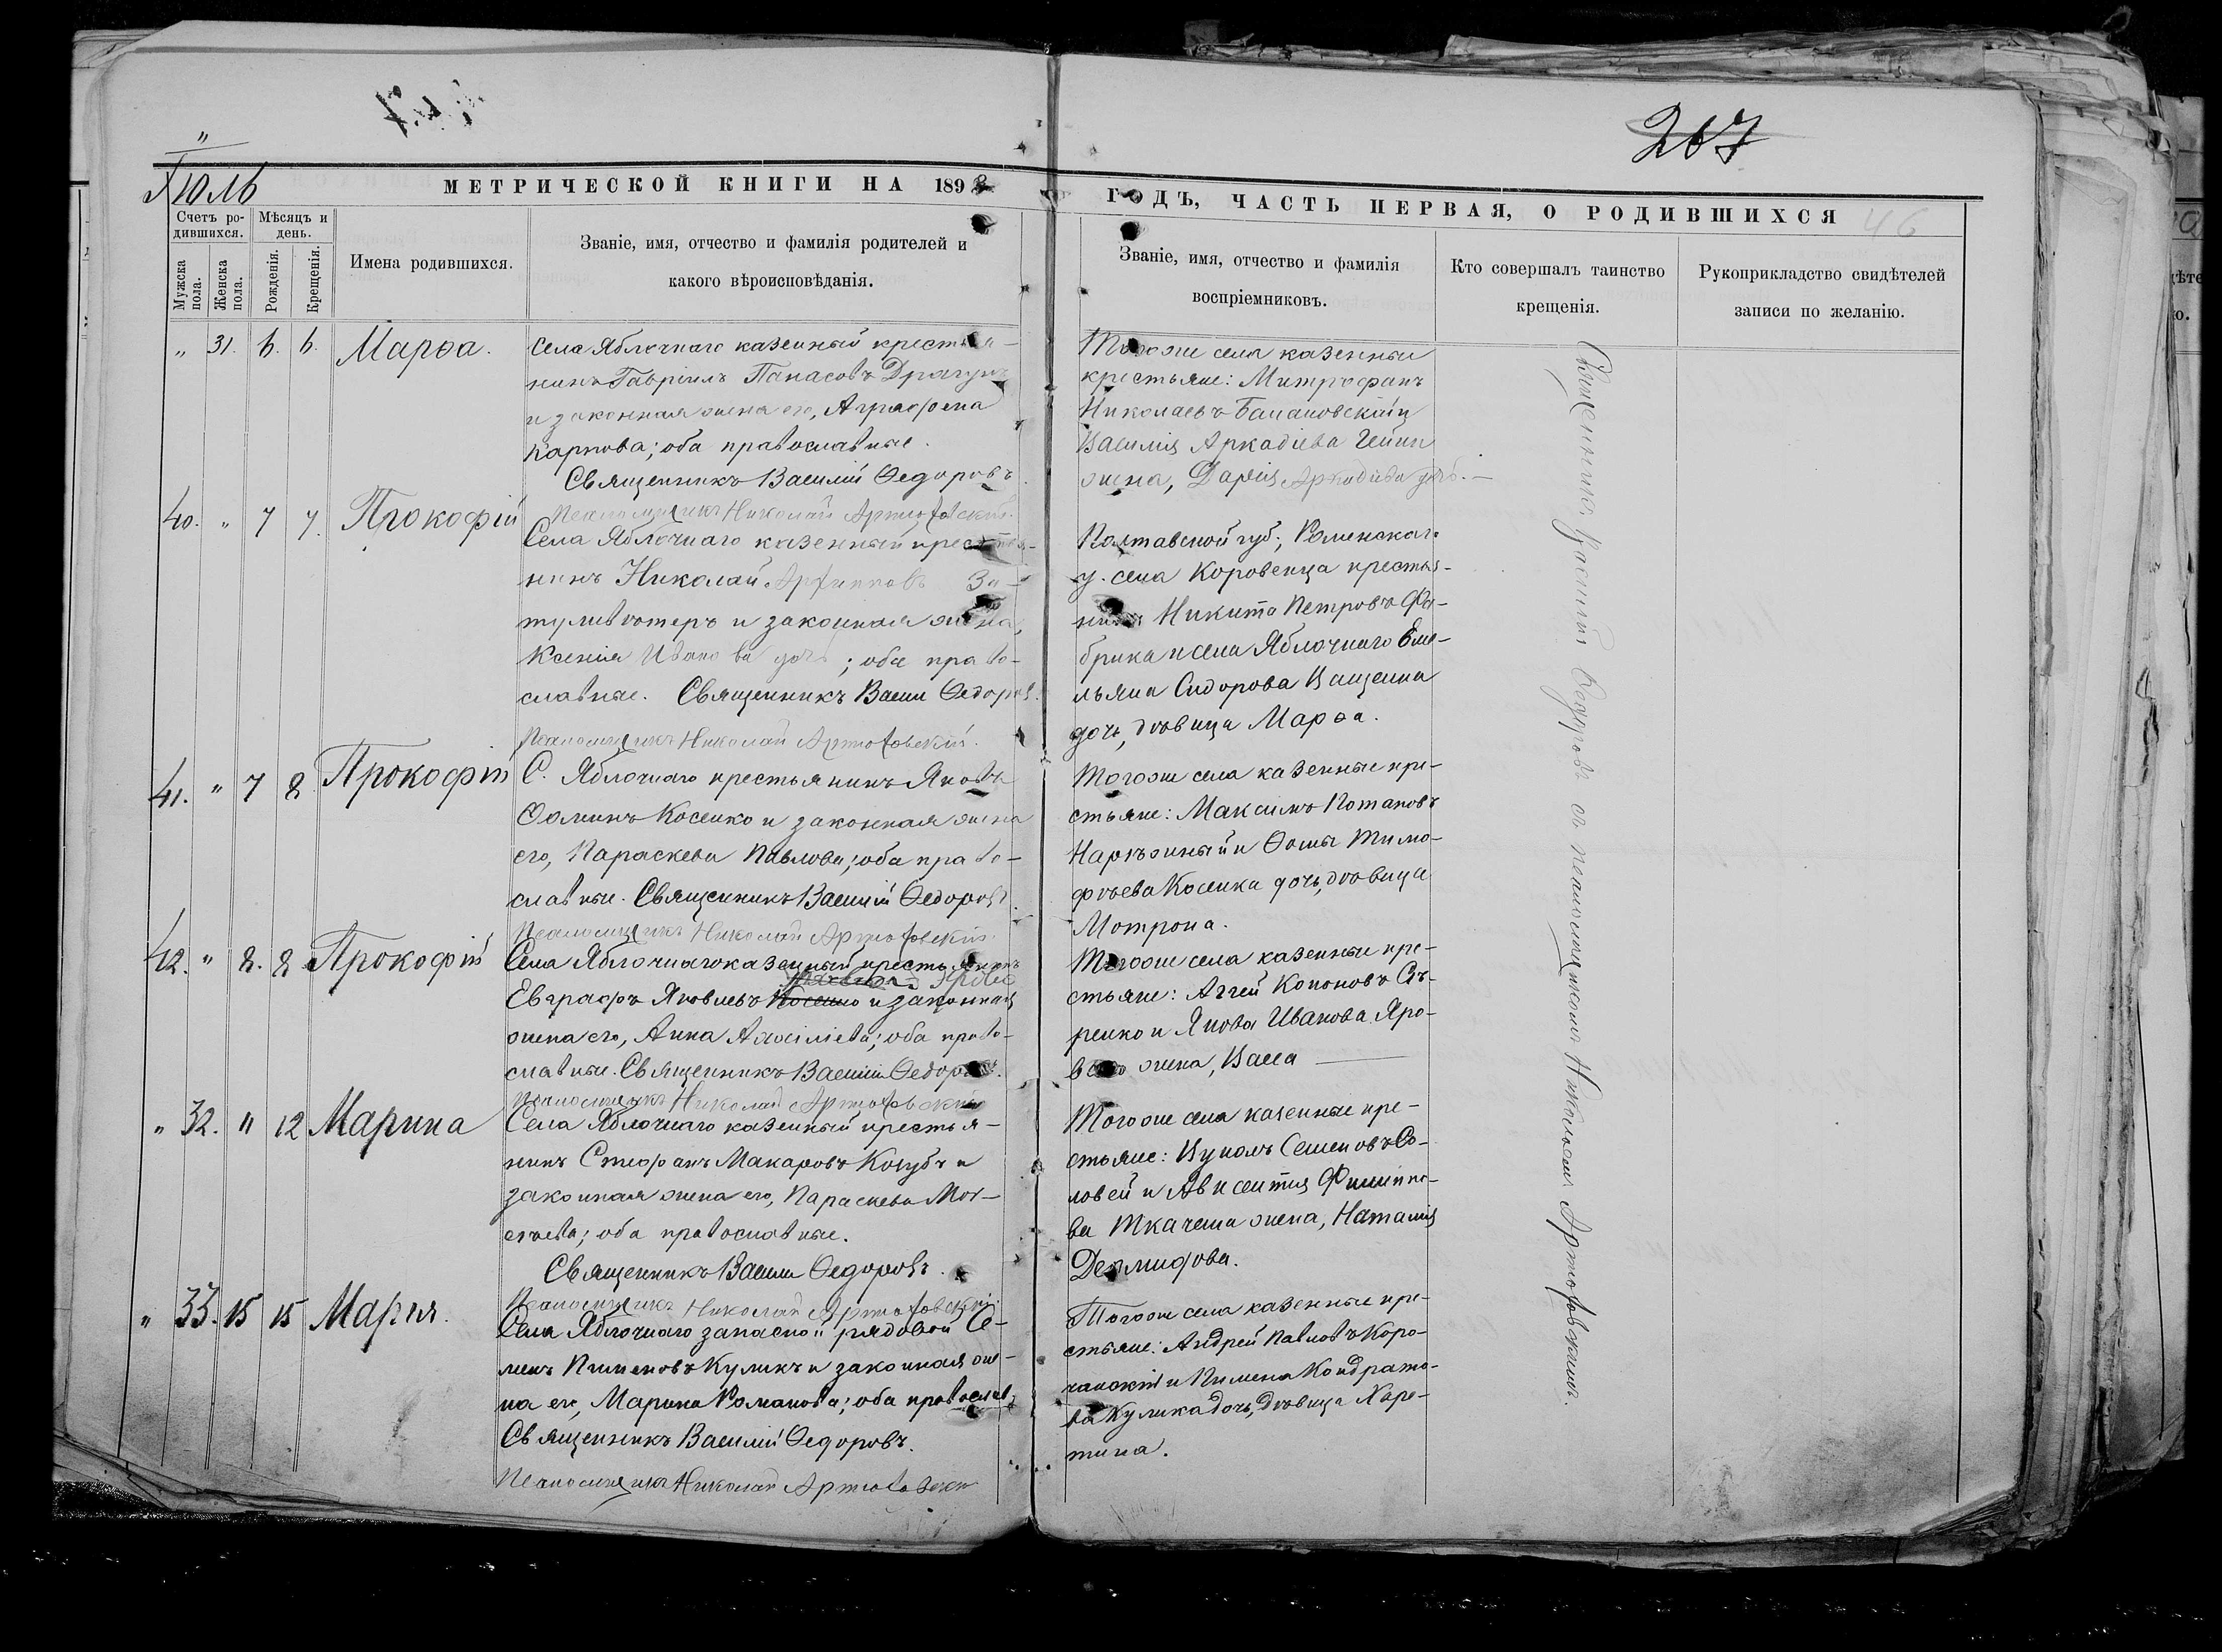 267
46
Іюль
МЕТРИЧЕСКОЙ КНИГИ НА 1893
ГОДЪ, ЧАСТЬ ПЕРВАЯ, О РОДИВШИХСЯ
Счетъ ро-
дившихся.
Мѣсяцъ и
день.
Мужска
пола.
Женска
пола.
Рожденія.
Крещенія.
Имена родившихся.
Званіе, имя, отчество и фамилія родителей и
какого вѣроисповѣданія.
Званіе, имя, отчество и фамилія
воспріемниковъ.
Кто совершалъ таинство
крещенія.
Рукоприкладство свидѣтелей
записи по желанію.
" 31. 6. 6. Марѳа.
Села Яблочнаго казенный крестья-
нинъ Гавріилъ Панасовъ Драгунъ
и законная жена его, Аграфена
Карпова; оба православные.
Священникъ Василій Ѳедоровъ
Псаломщикъ Николай Артюховскій.
Того же села казенные
крестьяне: Митрофанъ
Николаевъ
Василія Аркадіева
жена, Дарія
40. " 7 7. Прокофій
Села Яблочнаго казенный крестья-
нинъ Николай Архипповъ За-
и законная жена,
Ксенія Иванова дочь; оба право-
славные. Священникъ Васил Ѳедоровъ.
Псаломщикъ Николай Артюховскій.
Полтавской губ., Роменскаго
у. села Коровенца крестья-
нинъ Никита Петровъ Фа-
брика и села Яблочнаго Еме-
льяна Сидорова Ващенка
дочь, дѣвица Марѳа.
41. " 7 8. Прокофій
С. Яблочнаго крестьянинъ Яковъ
Ѳоминъ Косенко и законная жена
его, Параскева Павлова; оба право-
славные. Священникъ Василій Ѳедоровъ.
Псаломщикъ Николай Артюховскій.
Того же села казенные кре-
стьяне: Максимъ Потаповъ
Нарѣжный и Ѳомы Тимо-
ѳѣева Косенка дочь, дѣвица
Мотрона.
42. " 8. 8. Прокофій
Села Яблочнаго казенный крестьянинъ
Евграфъ Яковлевъ Косенко и законная
жена его, Анна; оба право-
славные. Священникъ Василій Ѳедоровъ.
Псаломщикъ Николай Артюховскій
Того же села казенные кре-
стьяне: Аггей Кононовъ Сѣ-
ренко и Якова Иванова Яро-
жена, Васса
" 32. " 12 Марина
Села Яблочнаго казенный крестья-
нинъ Стефанъ Макаровъ Козубъ и
законная жена его, Параскева Мо-
сѣева; оба православные.
Священникъ Васили Ѳедоровъ.
Псаломщикъ Николай Артюховскій.
Того же села казенные кре-
стьяне: Вуколъ Семеновъ Со-
ловей и Авксентія Филиппо-
ва Ткачева жена, Наталія
Демидова.
" 33. 15 15 Марія.
Села Яблочнаго запасной рядовой Се-
менъ Пименовъ Куликъ и законная же-
на его, Марина Романова; оба православ.
Священникъ Василій Ѳедоровъ.
Псаломщикъ Николай Артюховскі
Того же села казенные кре-
стьяне: Андрей Павловъ Коро-
чанскій и Пимена Кондрато-
ва Кулика дочь, дѣвица Харе-
тина.
Священникъ Василій Ѳедоровъ съ псаломщикомъ Николаемъ Артюховскимъ.